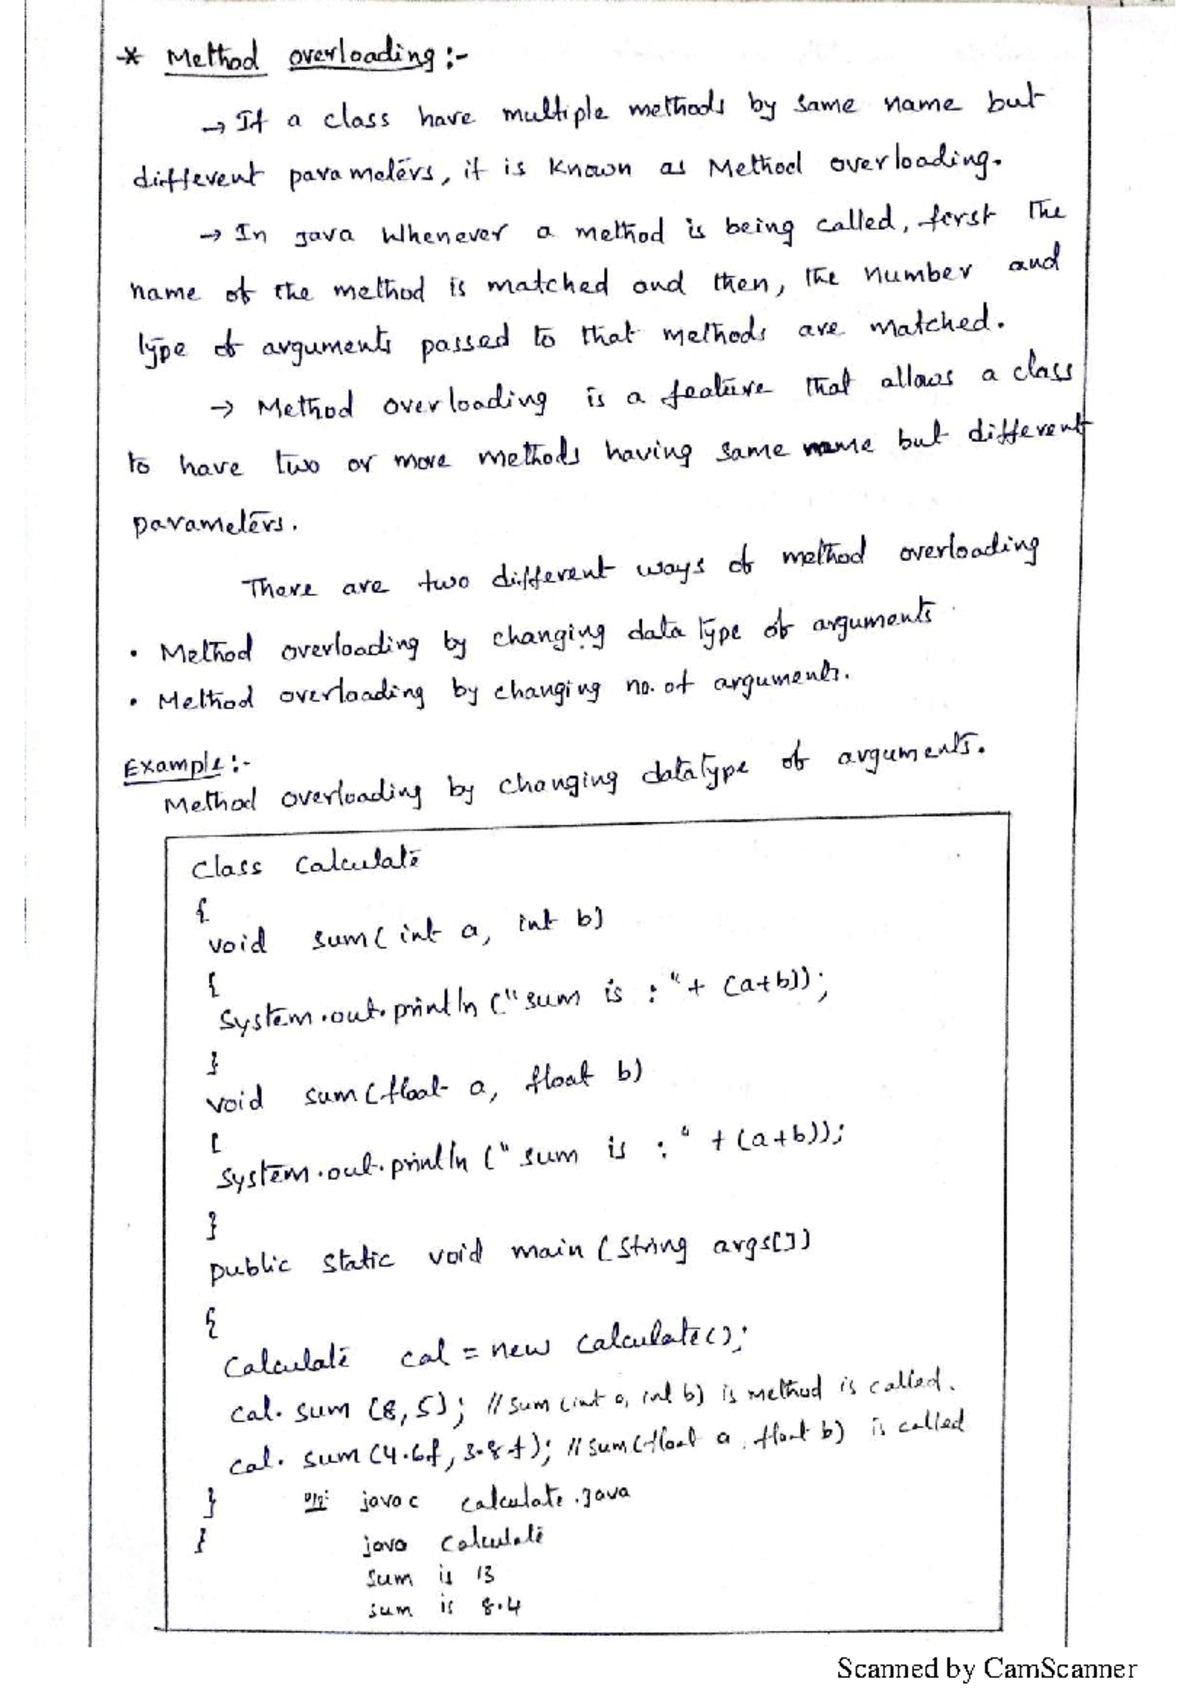 * Method overloading:-
→ If a class have multiple methods by same name but
different parameters, it is known as Method overloading.
→ In java whenever a method is being called, first the
name of the method is matched and then, the number and
type of arguments passed to that methods are matched.
→ Method overloading is a feature that allows a class
to have two or more methods having same name but different
parameters.
There are two different ways of method overloading
• Method overloading by changing data type of arguments
• Method overloading by changing no. of arguments.
Example:-
Method overloading by changing datatype of arguments.
class Calculate
{
void sum(int a, int b)
{
System.out.println("sum is : "+ (a+b));
}
void sum(float a, float b)
{
System.out.println("sum is : " +(a+b));
}
public static void main (String args[])
{
Calculate cal = new Calculate();
cal. sum (8,5); // sum(int a, int b) is method is called.
cal. sum (4.6f, 3.8f); // sum(float a, float b) is called
} o/p: javac calculate.java
} java Calculate
sum is 13
sum is 8.4
Scanned by CamScanner